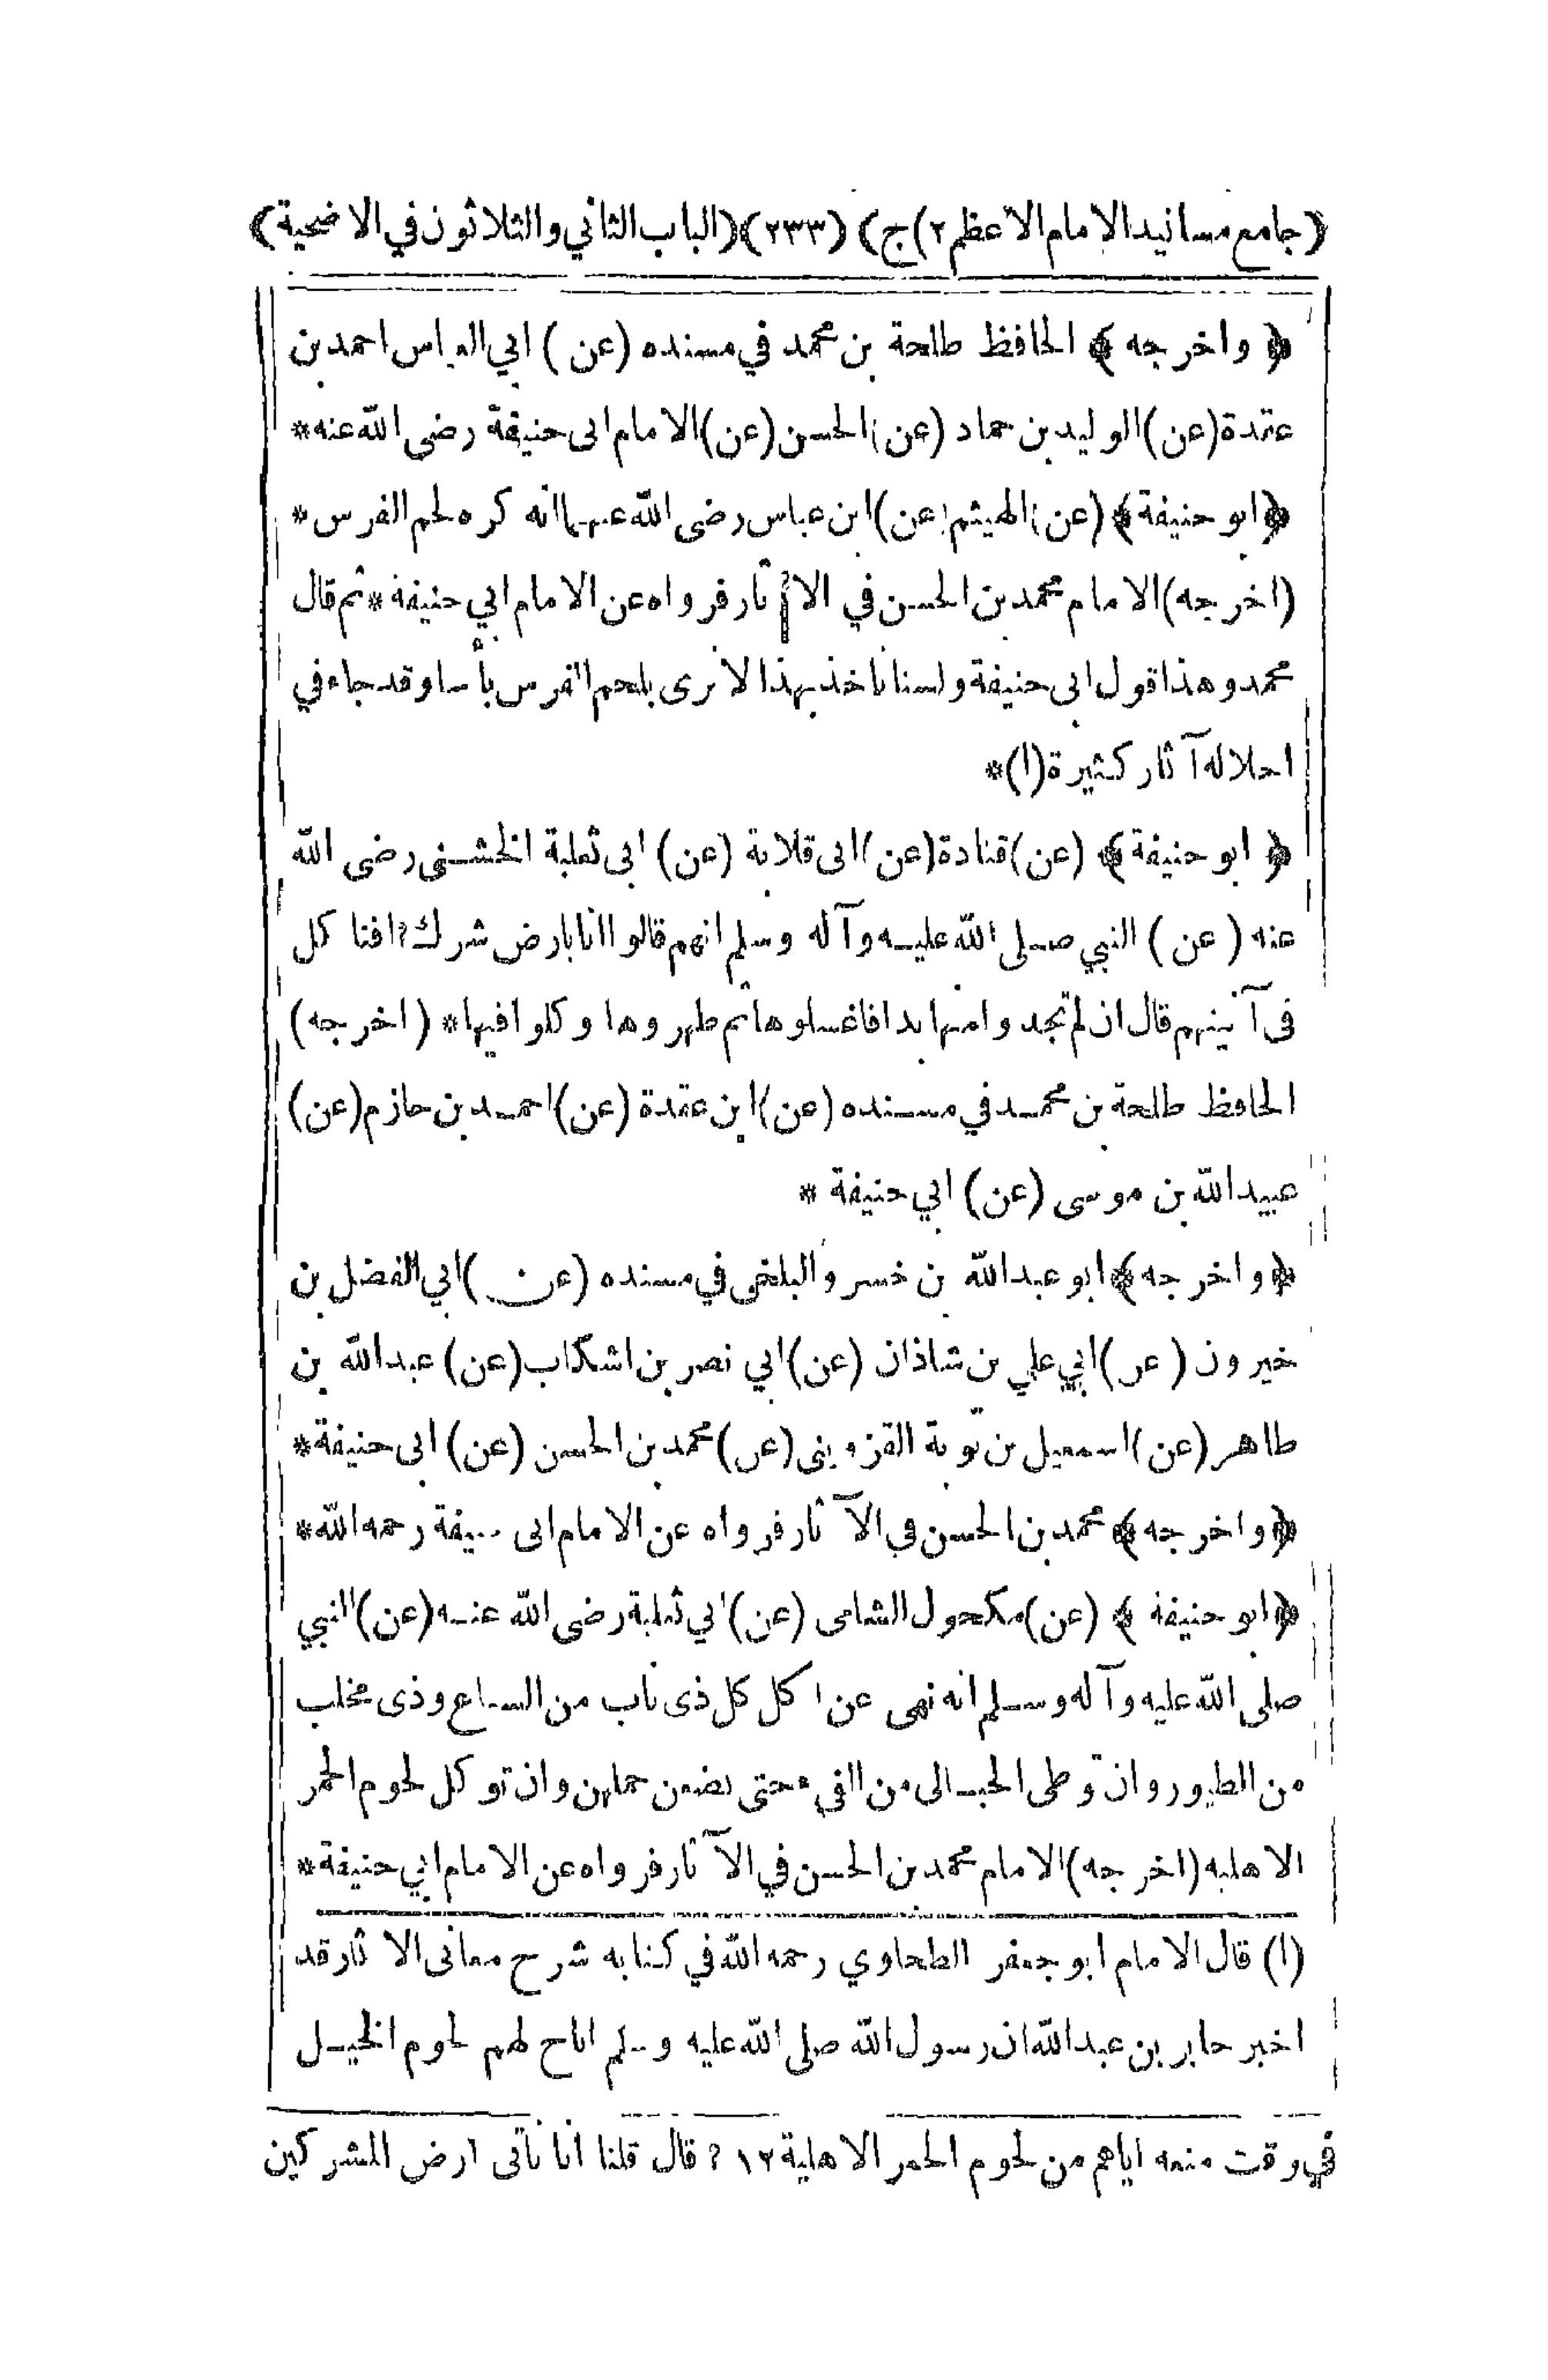 (جامع مسانيد الامام الاعظم ٢) ج) (٢٣٣) (الباب الثاني والثلاثون في الاضحية)
﴿ واخرجه ﴾ الحافظ طلحة بن محمد في مسنده (عن) ابي العباس احمد بن
عقدة (عن) الوليد بن حماد (عن) الحسن (عن) الامام ابى حنيفة رضى الله عنه *
﴿ ابو حنيفة ﴾ (عن) الهيثم (عن) ابن عباس رضى الله عنهما انه كره لحم الفرس *
(اخرجه) الامام محمد بن الحسن في الآثار فرواه عن الامام ابي حنيفة * ثم قال
محمد وهذا قول ابى حنيفة ولسنا ناخذ بهذا لا نرى بلحم الفرس بأسا وقد جاء في
احلاله آثار كثيرة (١) *
﴿ ابو حنيفة ﴾ (عن) قتادة (عن) ابى قلابة (عن) ابى ثعلبة الخشنى رضى الله
عنه (عن) النبي صلى الله عليه وآله وسلم انهم قالوا انا بارض شرك ? افنا كل
فى آنيتهم قال ان لم تجدوا منها بدا فاغسلوها ثم طهروها وكلوا فيها * (اخرجه)
الحافظ طلحة بن محمد في مسنده (عن) ابن عقدة (عن) احمد بن حازم (عن)
عبيد الله بن موسى (عن) ابي حنيفة *
﴿ واخرجه ﴾ ابو عبد الله بن خسرو البلخى في مسنده (عن) ابي الفضل بن
خيرون (عن) ابي علي بن شاذان (عن) ابي نصر بن اشكاب (عن) عبد الله بن
طاهر (عن) اسمعيل بن توبة القزوينى (عن) محمد بن الحسن (عن) ابى حنيفة *
﴿ واخرجه ﴾ محمد بن الحسن في الآثار فرواه عن الامام ابى حنيفة رحمه الله *
﴿ ابو حنيفة ﴾ (عن) مكحول الشامى (عن) ابي ثعلبة رضى الله عنه (عن) النبي
صلى الله عليه وآله وسلم انه نهى عن اكل كل ذى ناب من السباع وذى مخلب
من الطيور وان توطى الحبالى من الفيء حتى يضعن حملهن وان توكل لحوم الحمر
الاهلية (اخرجه) الامام محمد بن الحسن في الآثار فرواه عن الامام ابي حنيفة *
(١) قال الامام ابو جعفر الطحاوي رحمه الله في كتابه شرح معانى الاثار قد
اخبر جابر بن عبد الله ان رسول الله صلى الله عليه وسلم اباح لهم لحوم الخيل
في وقت منعه اياهم من لحوم الحمر الاهلية ١٢ ? قال قلنا انا نأتى ارض المشركين